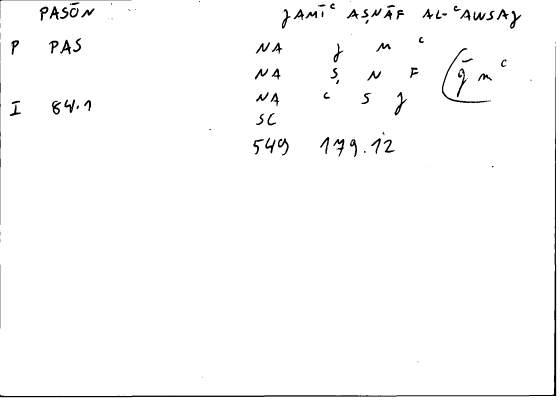 PASŌN ɡ̌AMĪᶜ AṢNĀF AL-ᶜAWSAɡ̌
P PAS NA ɡ̌ m ᶜ
NA Ṣ N F (ɡ̌ m ᶜ
I 84.1 NA ᶜ S ɡ̌
SC
549 179.12